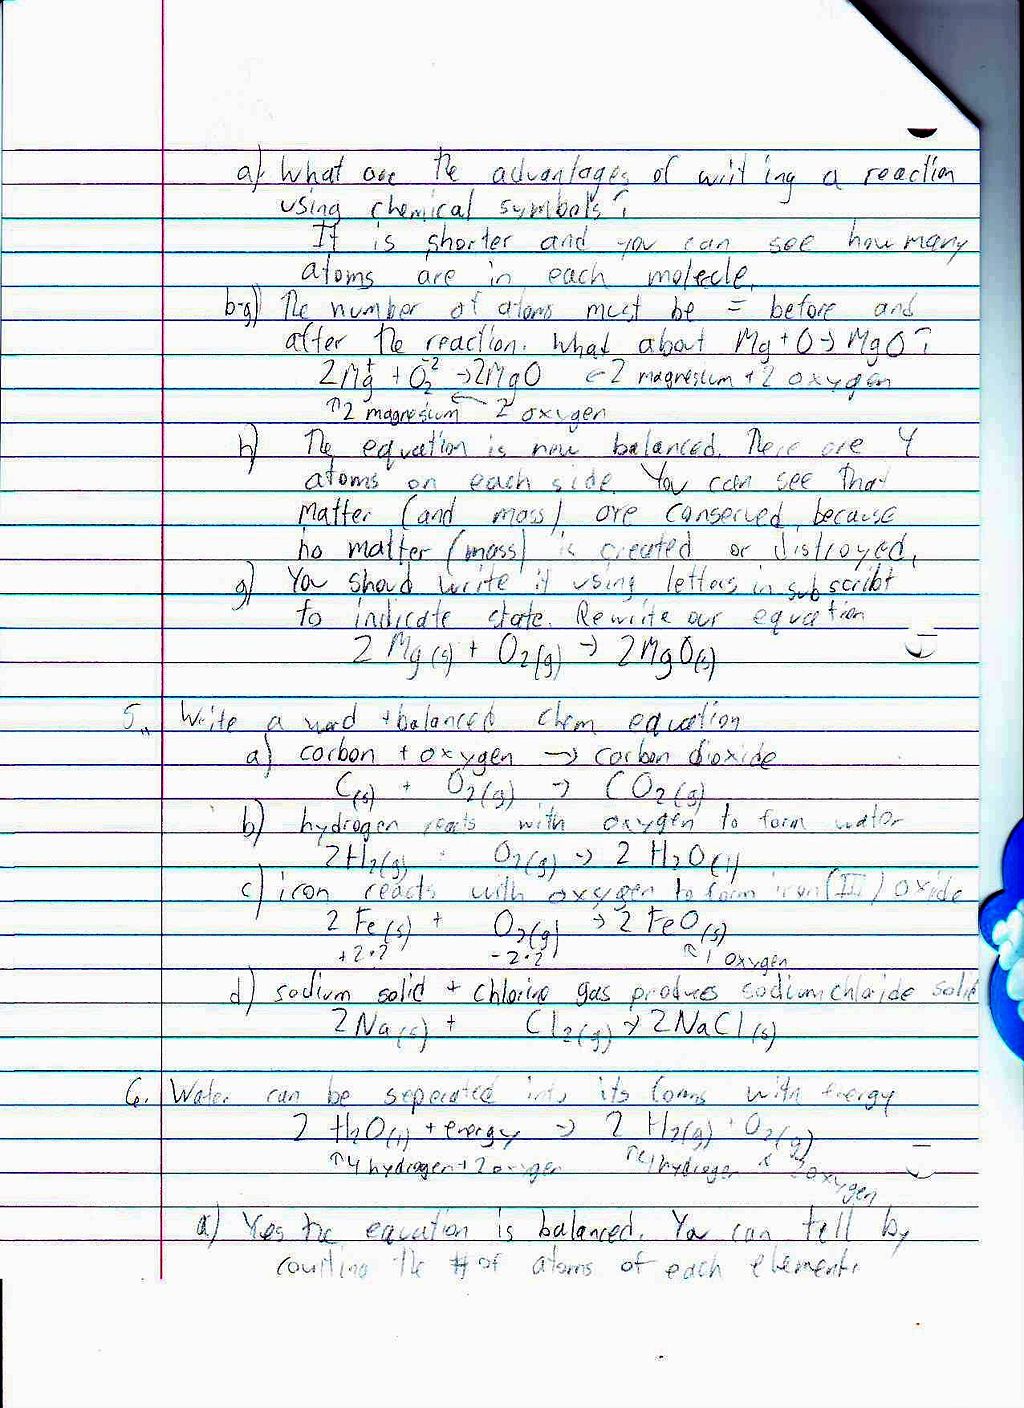 a) What are the advantages of writing a reaction
using chemical symbols?
It is shorter and you can see how many
atoms are in each molecle.
b-g) The number of atoms must be = before and
after the reaction. What about Mg + O → MgO?
2Mg⁺ + O₂⁻² → 2MgO ← 2 magnesium + 2 oxygen
↑2 magnesium ← 2 oxygen
h) The equation is now balanced. There are 4
atoms on each side. You can see that
matter (and mass) are conserved, because
no matter (mass) is created or distroyed.
g) You shoud write it using letters in subscribt
to indicate state. Rewrite our equation
2 Mg(s) + O₂(g) → 2MgO(s)
5. Write a word + balanced chem equation
a) carbon + oxygen → carbon dioxide
C(s) + O₂(g) → CO₂(g)
b) hydrogen reacts with oxygen to form water
2H₂(g) + O₂(g) → 2 H₂O(l)
c) iron reacts with oxsygen to form iron(III) oxide
2 Fe(s) + O₂(g) → 2 FeO(s)
+2·2 -2·2 ↑1 oxygen
d) sodium solid + chlorine gas produces sodium chloride solid
2Na(s) + Cl₂(g) → 2NaCl(s)
6. Water can be seperated into its forms with energy
2 H₂O(l) + energy → 2 H₂(g) + O₂(g)
↑4 hydrogen + 2 oxygen ↑4 hydrogen 2 oxygen
a) Yes the equation is balanced. You can tell by
counting the # of atoms of each element.